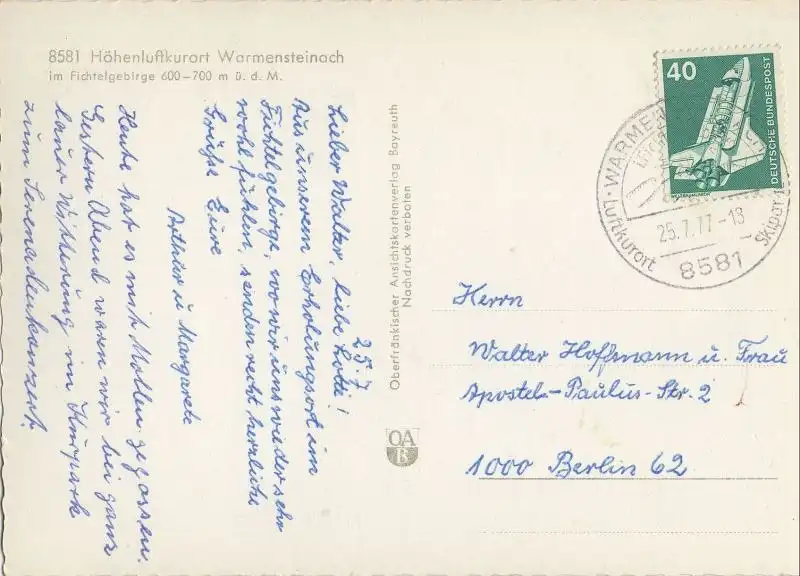 8581 Höhenluftkurort Warmensteinach
im Fichtelgebirge 600–700 m ü. d. M.
25.7
Lieber Walter, liebe Lotte!
Aus unserem Erholungsort im
Fichtelgebirge, wo wir uns wieder sehr
wohl fühlen, senden recht herzliche
Grüße Eure
Arthur u Margarete
Heute hat es mit Mollen gegossen.
Gestern Abend waren wir bei ganz
lauer Witterung im Kurpark
zum Serenadenkonzert.
Oberfränkischer Ansichtskartenverlag Bayreuth
Nachdruck verboten
OA
B
40
DEUTSCHE BUNDESPOST
WARME
Luftkurort
Skipar
25.7.77-13
8581
Herrn
Walter Hoffmann u. Frau
Apostel-Paulus-Str. 2
1000 Berlin 62